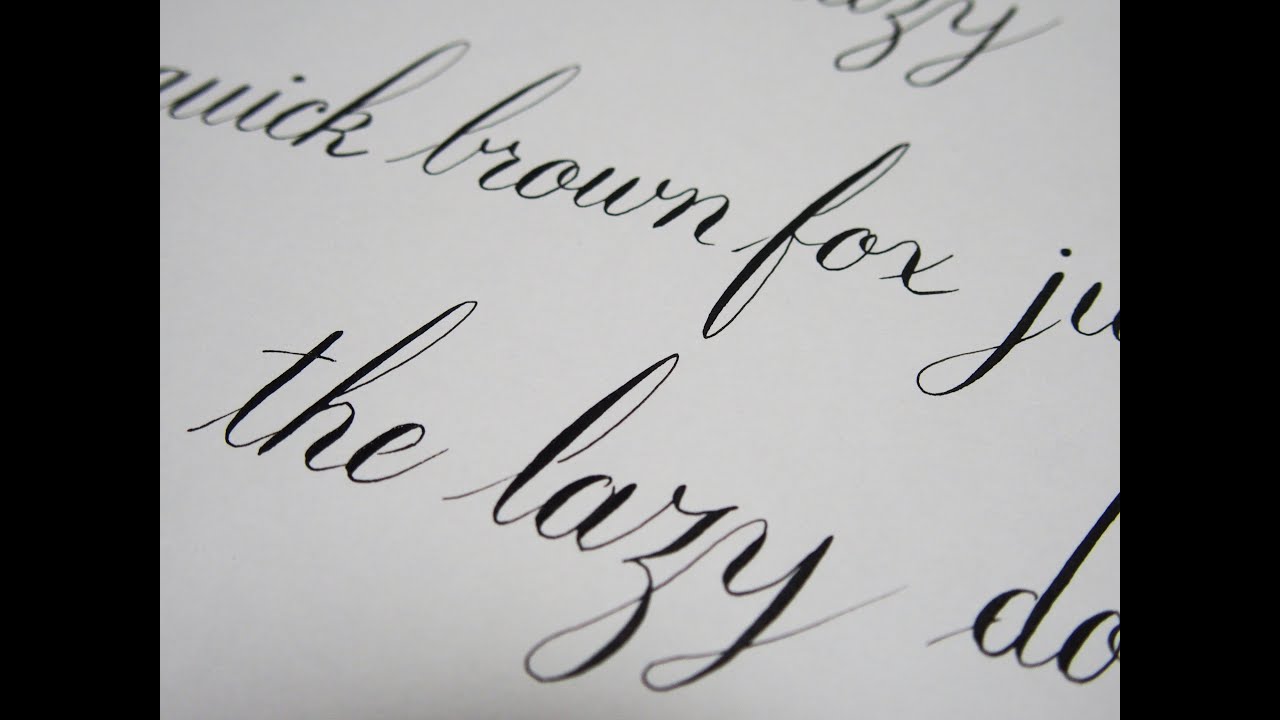 lazy
quick brown fox ju
the lazy do